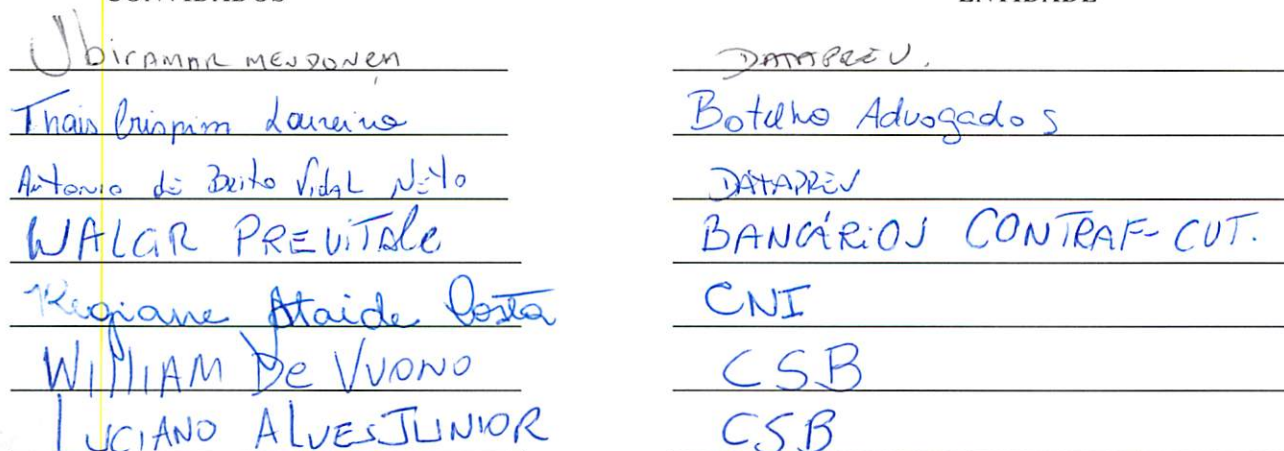 CONVIDADOS ENTIDADE
Ubiramar Mendonça DATAPREV.
Thais Crispim Loureiro Botelho Advogados
Antonio de Brito Vidal Neto DATAPREV
WALCIR PREVITALE BANCÁRIOS CONTRAF-CUT.
Regiane Ataide Costa CNI
WILLIAM De VUONO CSB
LUCIANO ALVES JUNIOR CSB